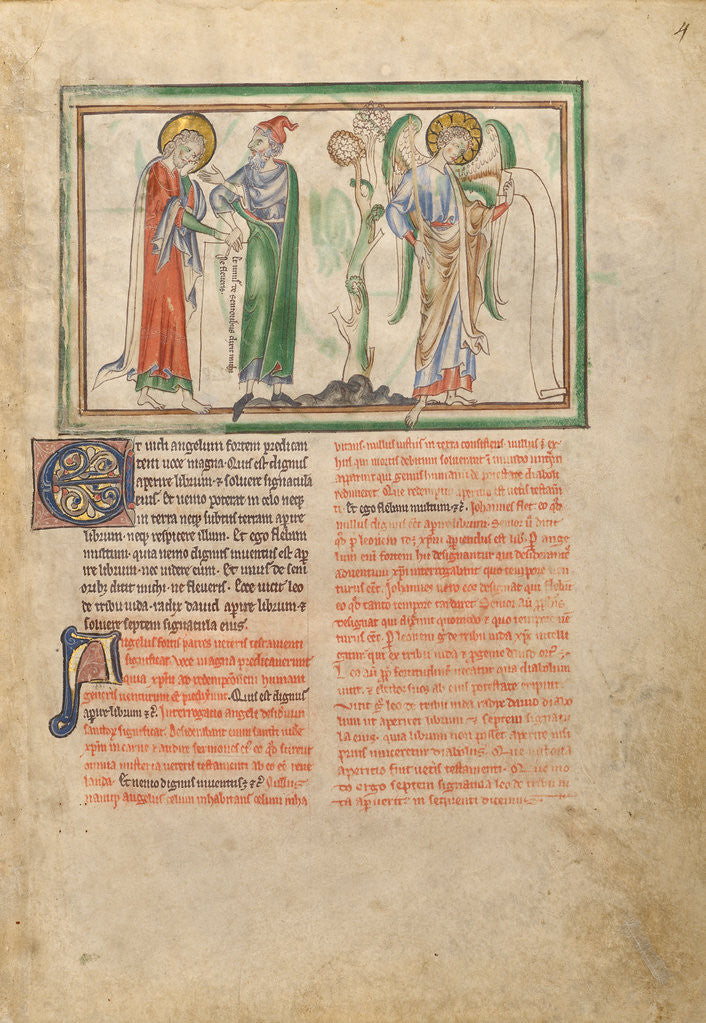 4
Et unus de senioribus dixit michi
ne fleveris.
Et vidi angelum fortem predican
tem voce magna. Quis est dignus
aperire librum ⁊ solvere signacula
eius. Et nemo poterat in celo neqꝫ
in terra neqꝫ subtus terram apire
librum. neqꝫ respicere illum. Et ego flebam
multum. quia nemo dignus inventus est ap
ire librum. nec videre eum. Et unus de seni
oribꝫ dicit michi. ne fleveris. Ecce vicit leo
de tribu iuda. radix david apire librum. ⁊
solvere septem signacula eius.
Angelus fortis patres veteris testamenti
significat. Voce magna predicaverunt
quia xpm ad redemptionem humani
generis venturum ee predixerunt. Quis est dignus
apire librum ⁊ c. Interrogatio angeli desideriū
sanctoꝝ significat. Desiderabant enim sancti videre
xpm in carne ⁊ audire sermones ei
omnia misteria veteris testamenti ab eo
landa. Et nemo dignus inventus ⁊ c. Nullus
namqꝫ angelus celum inhabitans celum inha
bitans. nullus iustus in terra consistens. nullus
qui mortis debitum solverant
aparint qui genus humanum de ptate diaboli
redimeret. Que redemptio aptio est vetis testam̄
ti. Et ego flebam multum. ⁊ c. Johannes flet eo qd
nullus dignus eēt apire librum. Senior
qd p leonem xpm apiendus est lib. P ange
lum fortem hic designantur qui desiderantes
adventum xpi interrogabant quo tempore ven
turus eēt. Johannes vero eos designat qui flebāt
eo qd tanto tempore tardaret. Senior
designat qui dixerunt quomodo ⁊ quo tempore ven
turus eēt. P leonem de tribu iuda xps intelli
gitur qui ex tribu iuda ⁊ pgenie david
Leo fortitudine vocatur quia diabolum
vicit. ⁊ electos suos ab eius potestate eripuit
Vicit leo de tribu iuda radix david diabo
lum ut aperiret librum ⁊ septem signacu
la eius. quia librum non posset aperire nisi
prius vinceretur diabolus.
apertio fuit vetis testamenti. Quomo
do ergo septem signacula leo de tribu iu
da apuerit in sequenti dicemus.